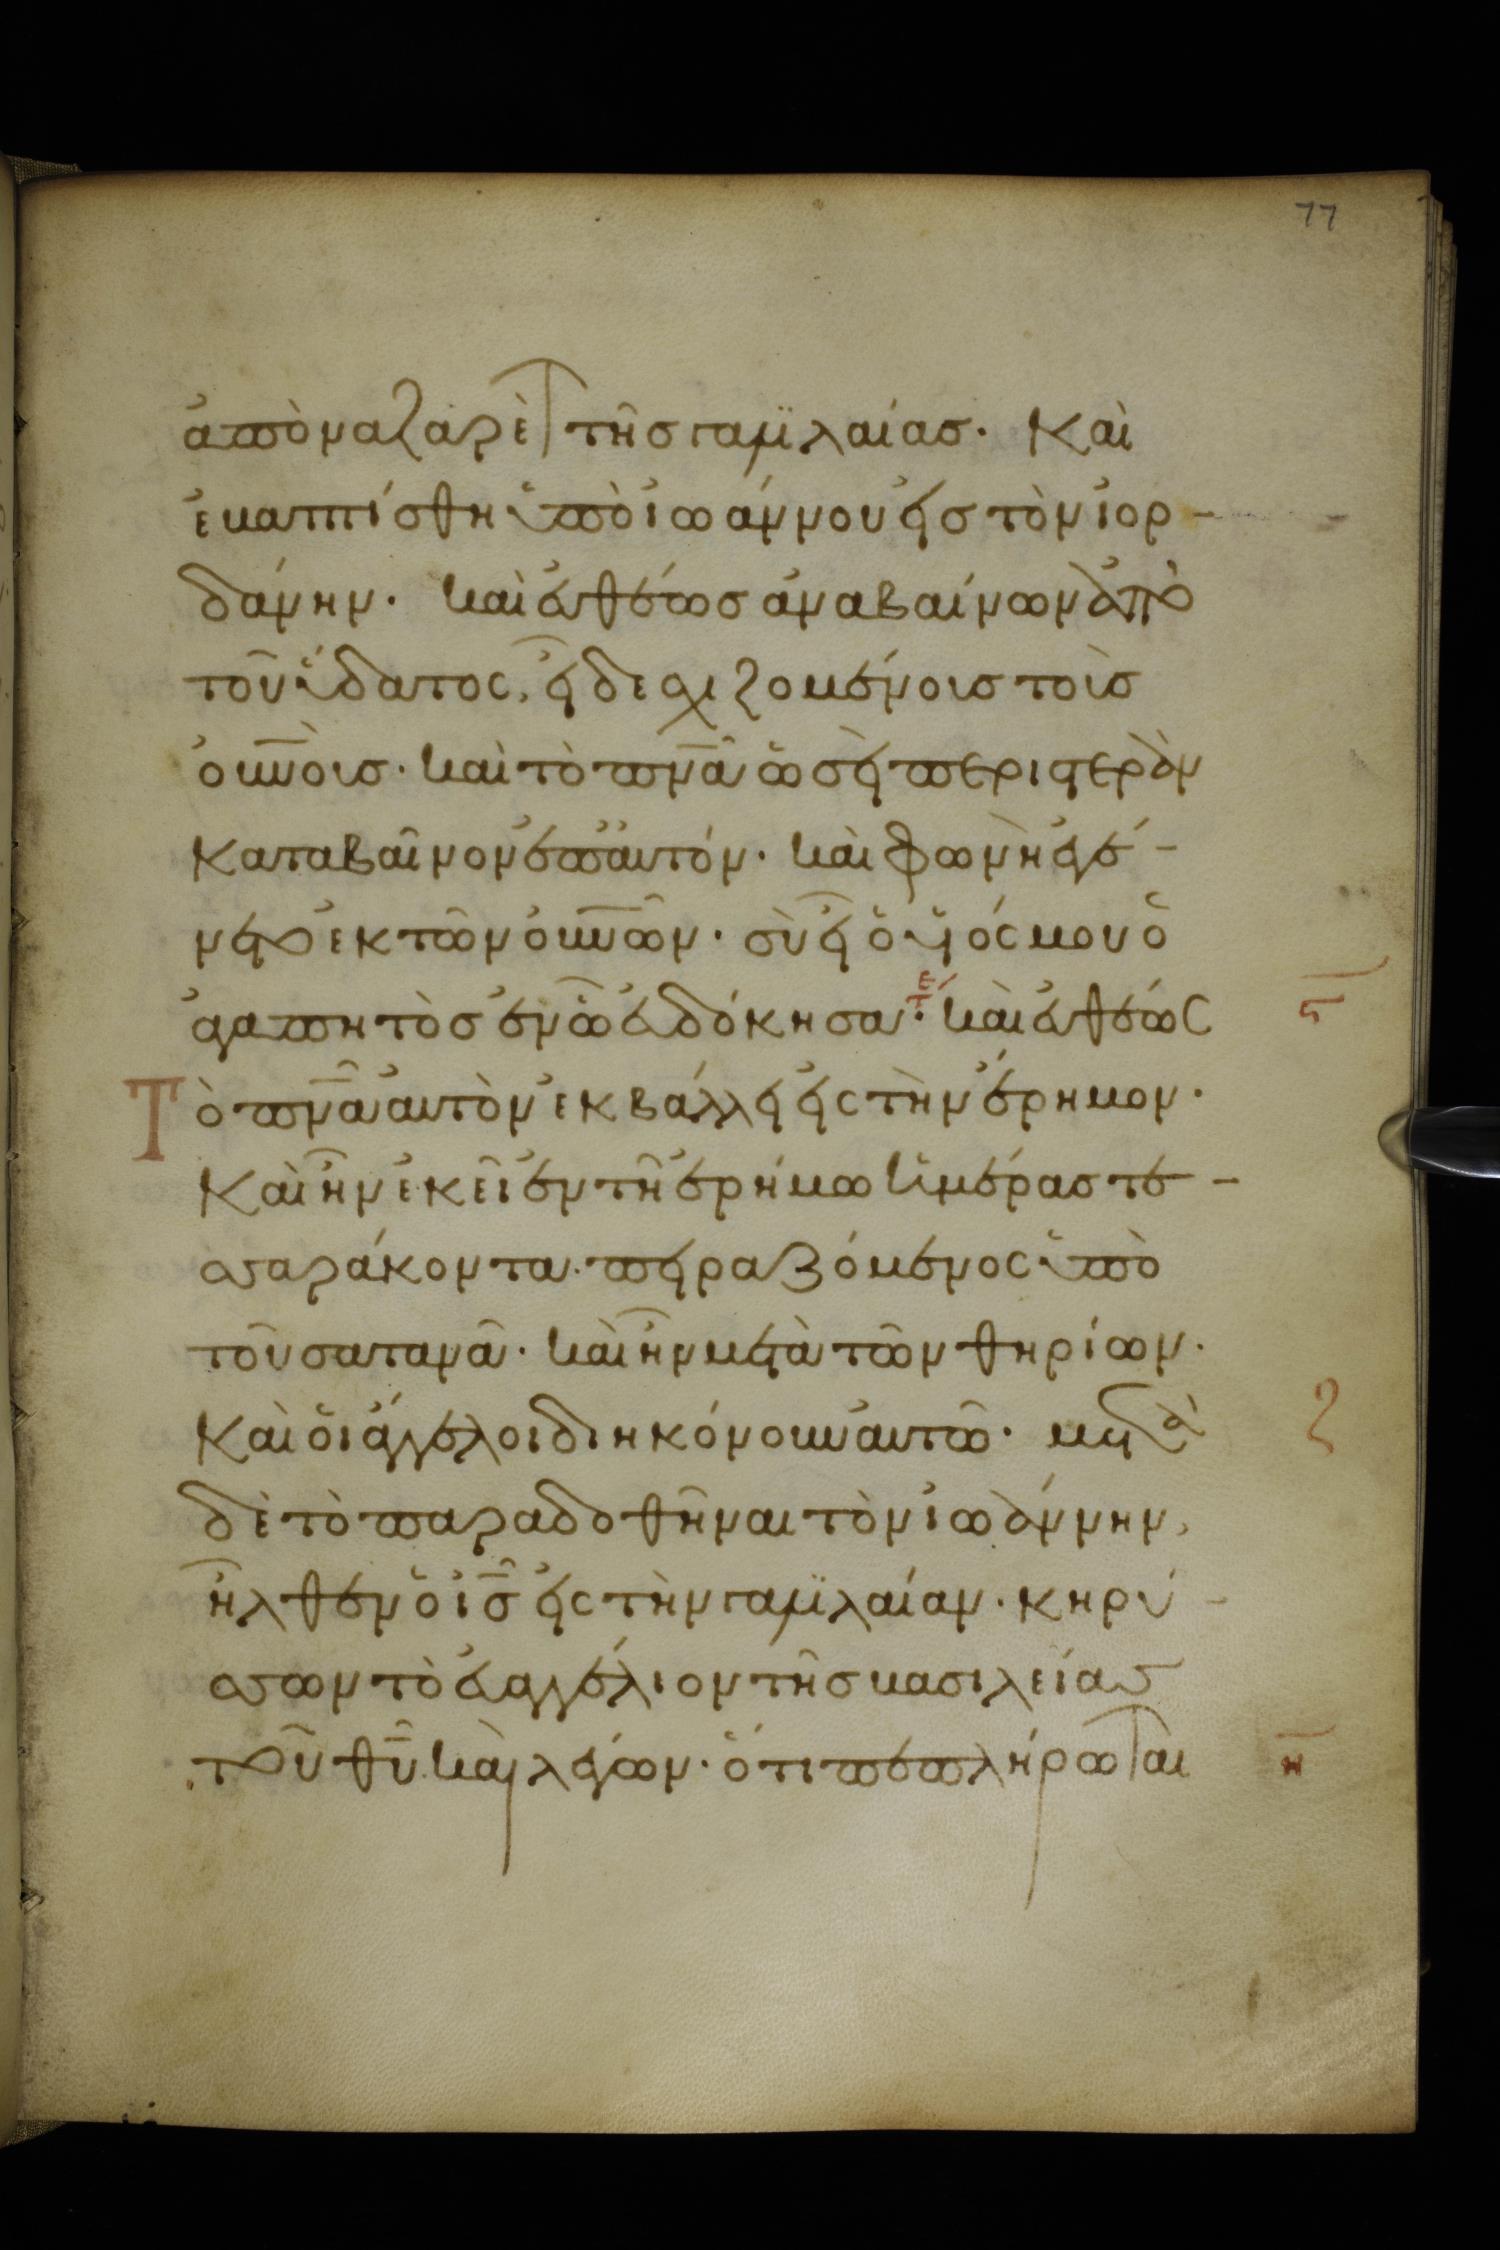 77
ἀπὸ ναζαρὲτ τῆς γαλιλαίας· Καὶ
ἐβαπτίσθη ὑπὸ ἰωάννου εἰς τὸν ἰορ-
δάνην· καὶ εὐθέως ἀναβαίνων ἀπὸ
τοῦ ὕδατος, εἶδε σχιζομένους τοὺς
οὐνοὺς· καὶ τὸ πνᾶ ὡσεὶ περιστερὰν
καταβαῖνον ἐπ' αὐτόν· καὶ φωνὴ ἐγέ-
νετο ἐκ τῶν οὐνῶν· σὺ εἶ ὁ υἱός μου ὁ
ἀγαπητὸς ἐν ὧ εὐδόκησα· καὶ εὐθέως
Τὸ πνᾶ αὐτὸν ἐκβάλλει εἰς τὴν ἔρημον·
Καὶ ἦν ἐκεῖ ἐν τῆ ἐρήμω ἡμέρας τε-
σσαράκοντα· πειραζόμενος ὑπὸ
τοῦ σατανᾶ· καὶ ἦν μετὰ τῶν θηρίων·
Καὶ οἱ ἄγγελοι διηκόνουν αὐτῶ· μετὰ
δὲ τὸ παραδοθῆναι τὸν ἰωάννην,
ἦλθεν ὁ ις εἰς τὴν γαλιλαίαν· κηρύ-
σσων τὸ εὐαγγέλιον τῆς βασιλείας
τοῦ θυ καὶ λέγων· ὅτι πεπλήρωται
η